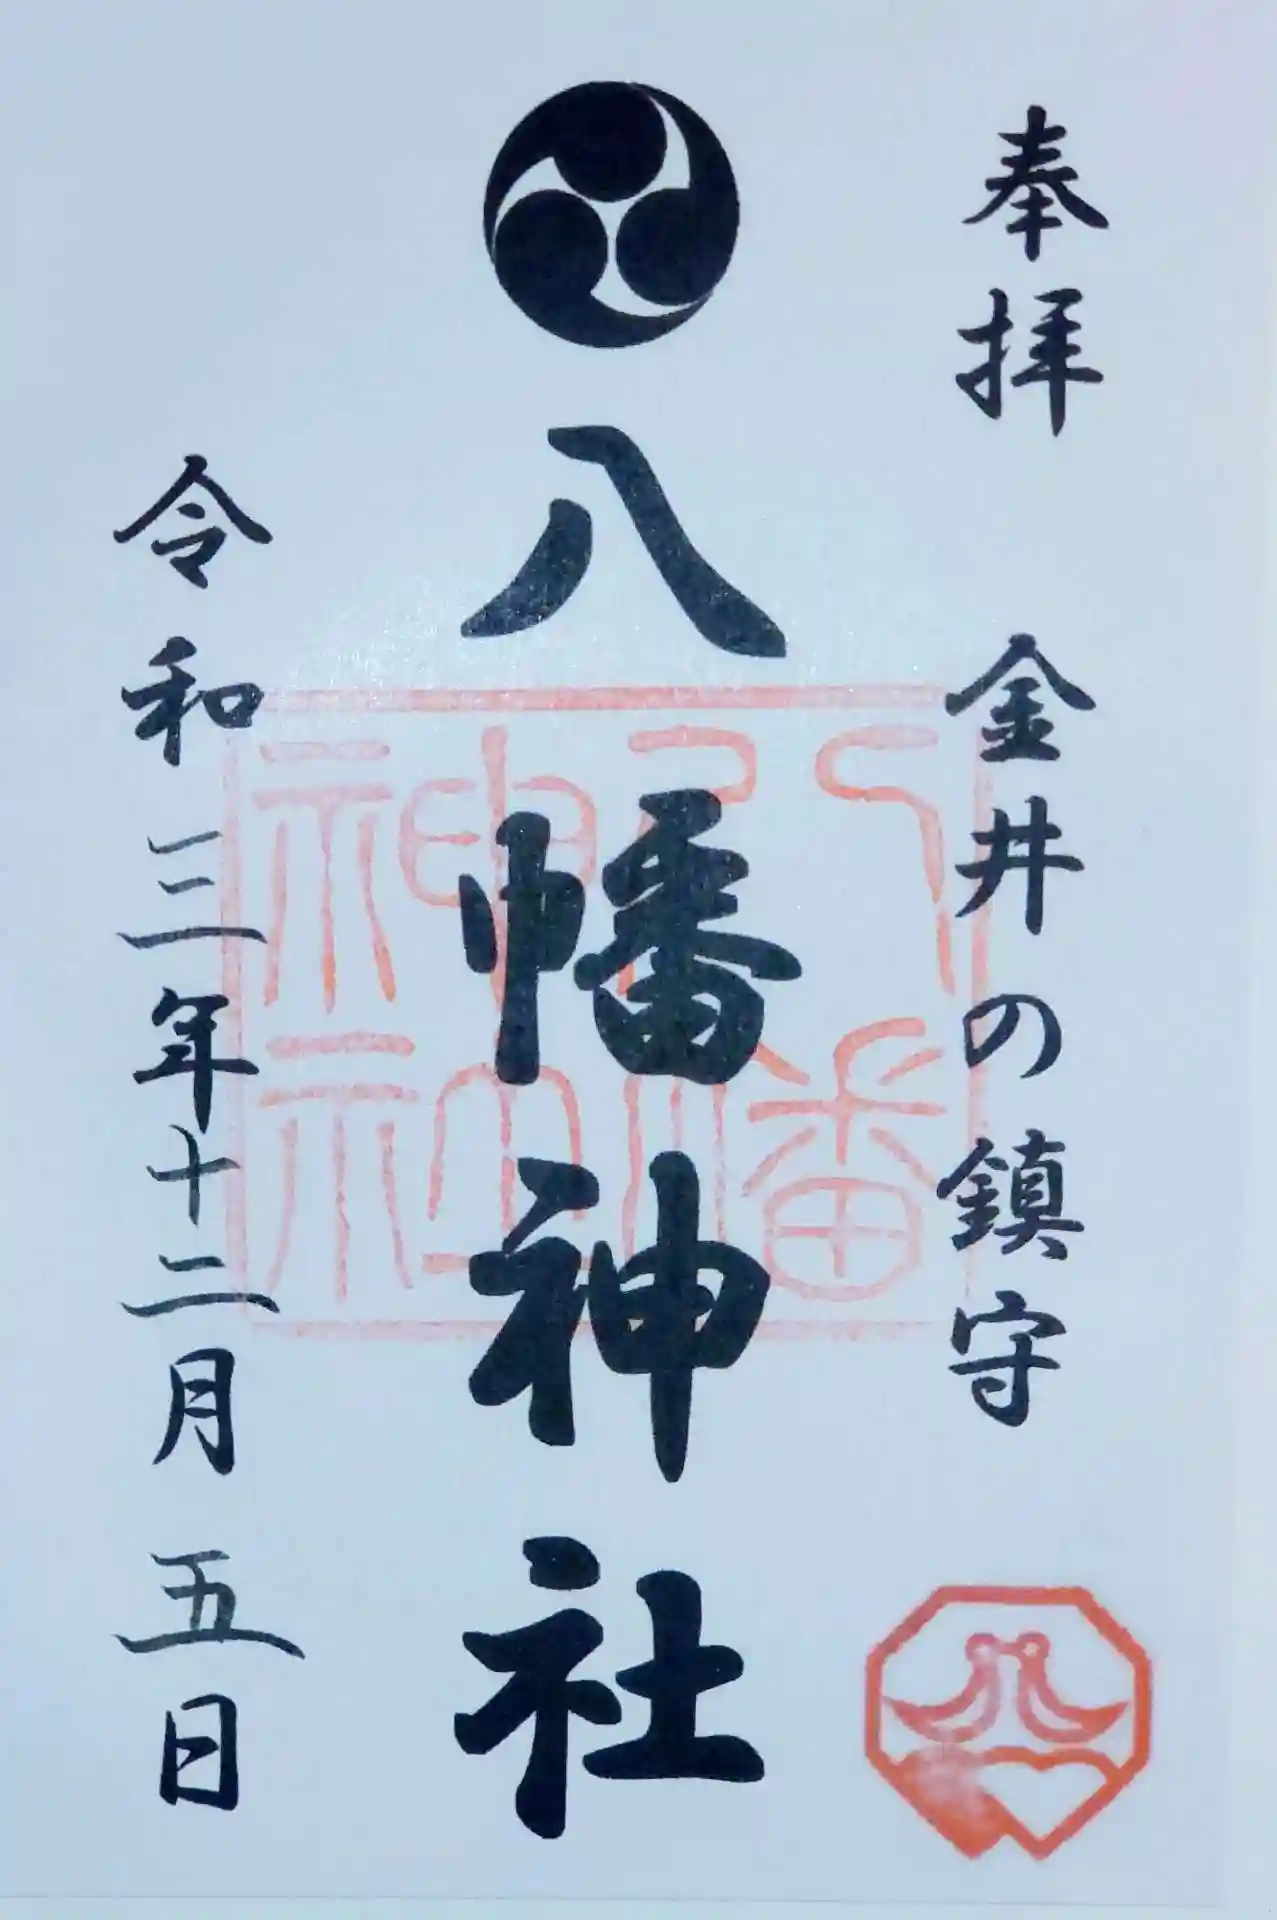 奉拝
金井の鎮守
八幡神社
八幡
神社
令和三年十二月五日